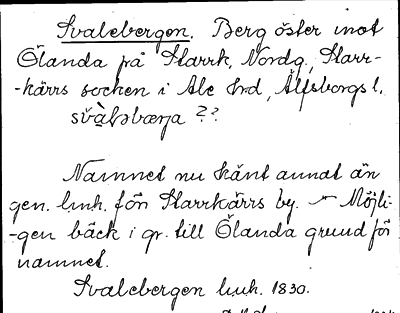 Svalebergen. Berg öster mot
Ölanda på Starrk. Nordg., Starr-
-kärrs socken i Ale hrd, Älfsborgs l.
svàləbærja ??
Namnet nu känt annat än
gen. l.u.h. för Starrkärrs by. Möjli-
-gen bäck i gr. till Ölanda grund för
namnet.
Svalebergen l.u.h. 1830.